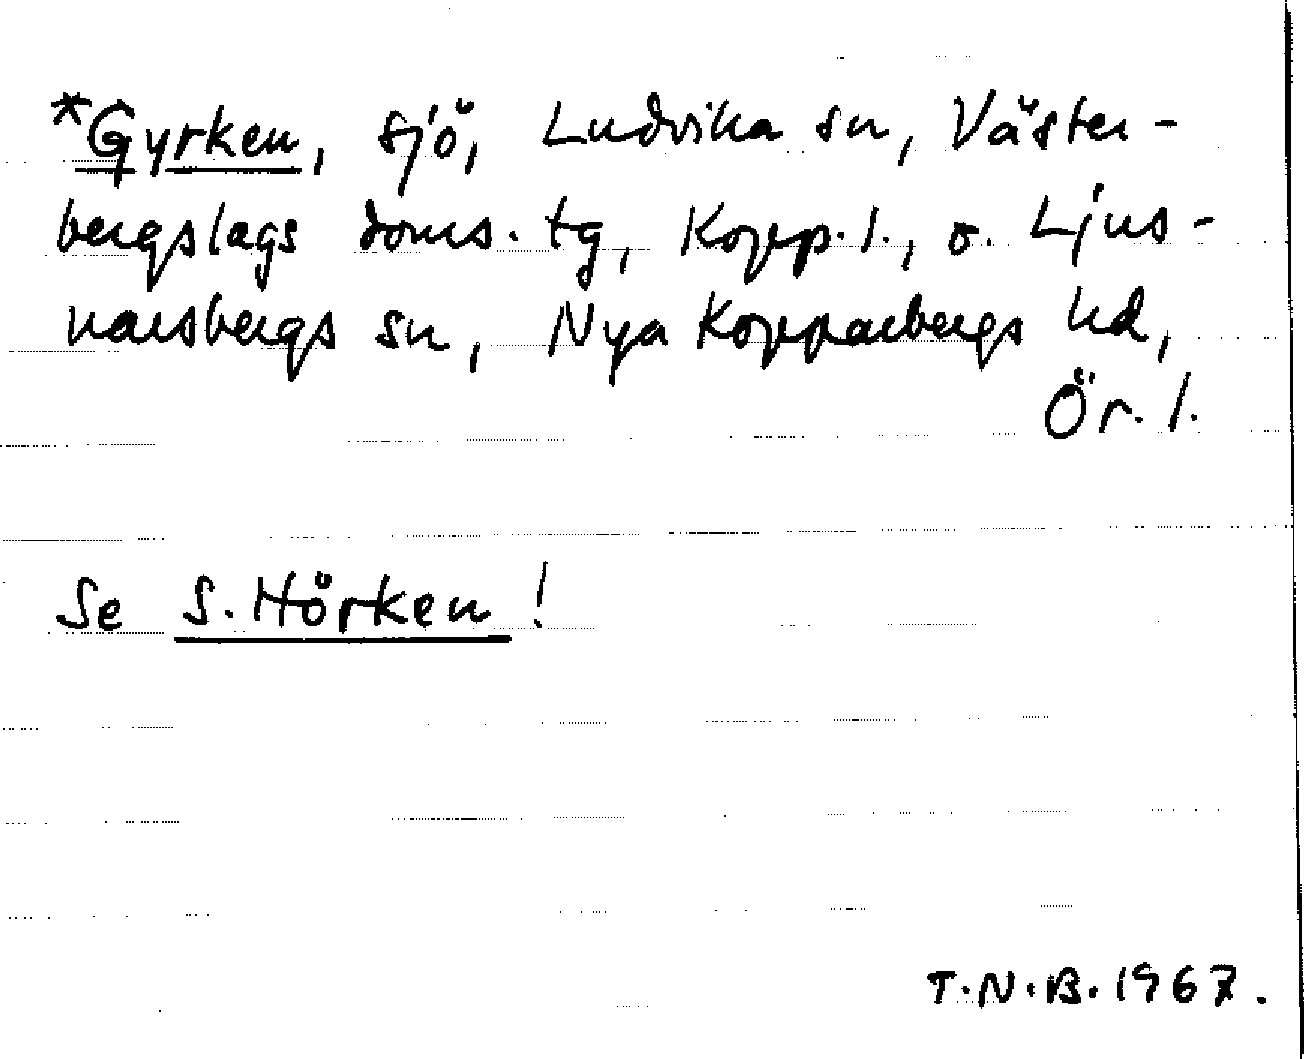 *Gyrken, sjö, Ludvika sn, Väster-
bergslags doms. tg, Kopp. l., o. Ljus-
narsbergs sn, Nya Kopparbergs hd,
Ör. l.
Se S. Hörken!
T.N.B. 1967.